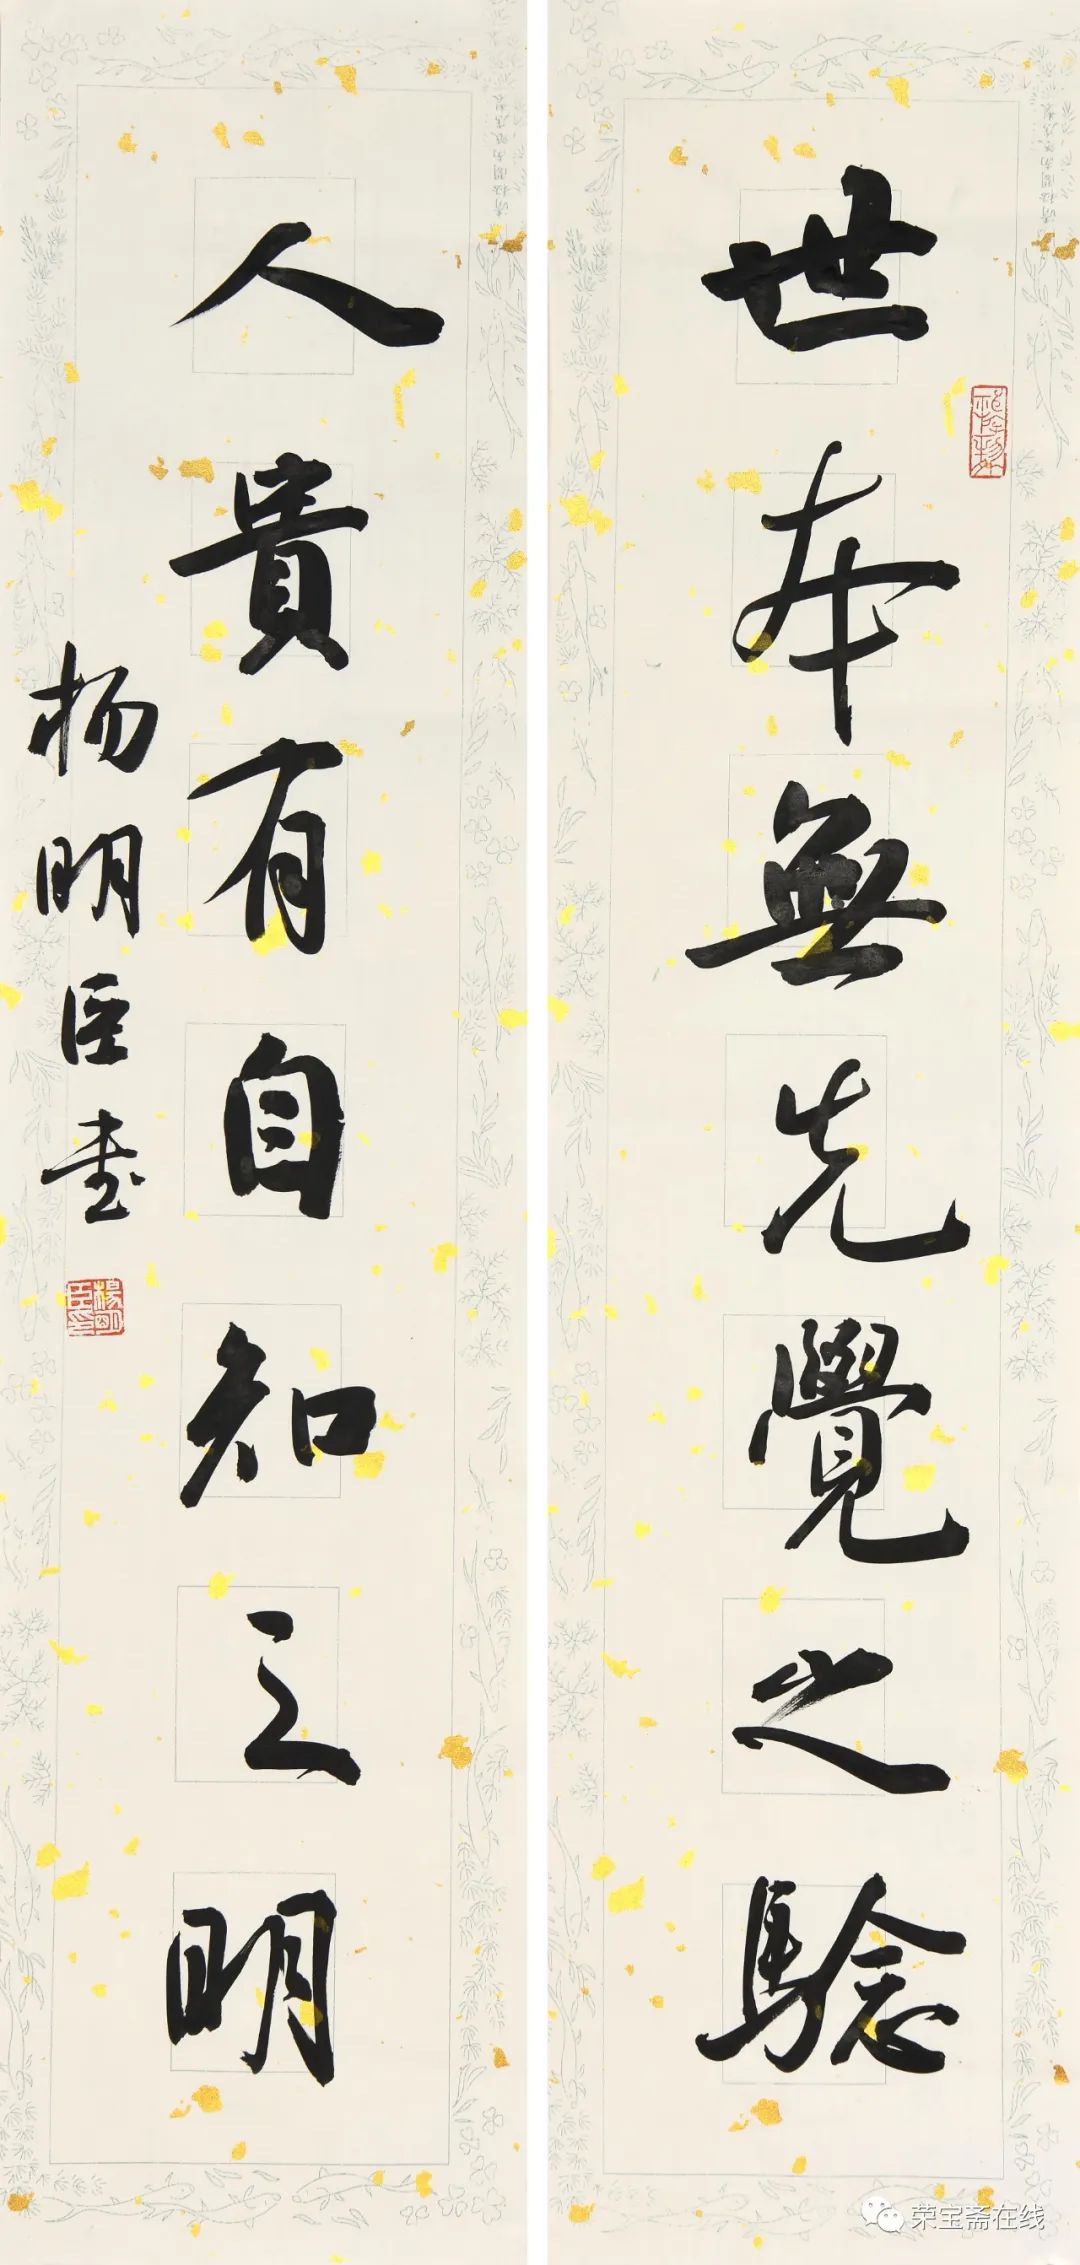 世本無先覺之驗
人貴有自知之明
杨明臣書
楊明臣印
荣宝斋在线